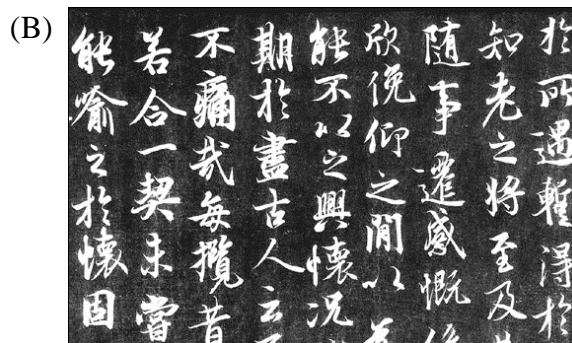 (B)
於所遇暫得於
知老之將至及其
隨事遷感慨係
欣俛仰之閒以
能不以之興懷況
期於盡古人云
不痛哉每攬昔
若合一契未嘗
能喻之於懷固